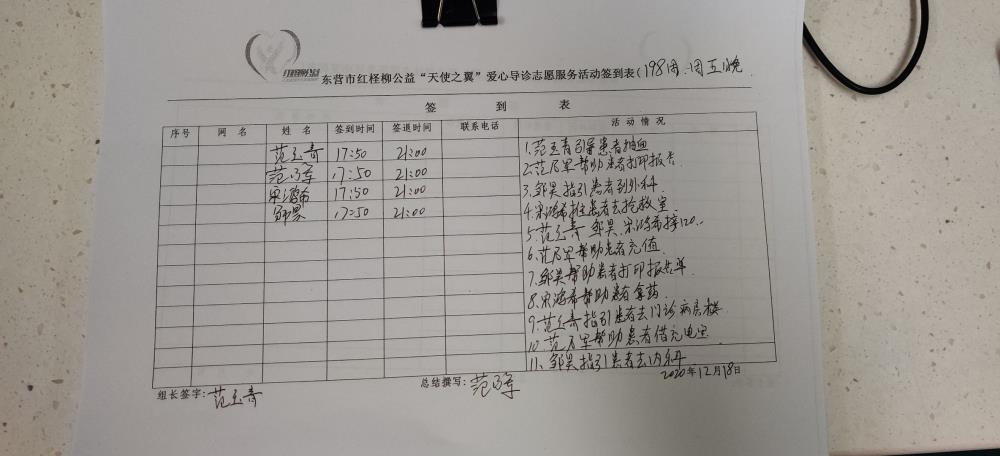 红柽柳公益
东营市红柽柳公益“天使之翼”爱心导诊志愿服务活动签到表(198周.周五晚
签 到 表
序号 网 名 姓 名 签到时间 签退时间 联系电话 活 动 情 况
范玉青 17:50 21:00
范乃军 17:50 21:00
宋鸿希 17:50 21:00
邹昊 17:50 21:00
1.范玉青引导患者抽血
2.范乃军帮助患者打印报告.
3.邹昊指引患者到外科.
4.宋鸿希推患者去抢救室.
5.范玉青 邹昊.宋鸿希接120..
6.范乃军帮助患者充值
7.邹昊帮助患者打印报告单
8.宋鸿希帮助患者拿药.
9.范玉青指引患者去门诊病房楼
10.范乃军帮助患者借充电宝
11.邹昊指引患者去内科
组长签字:范玉青 总结撰写:范乃军 2020年12月18日